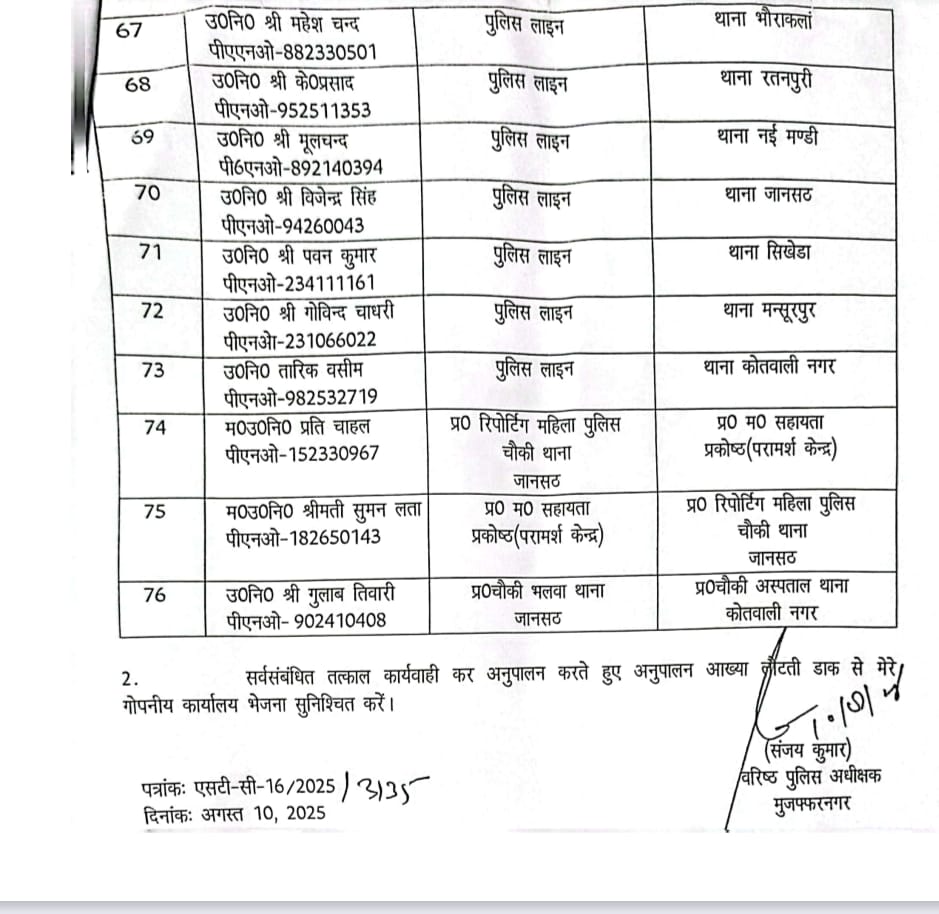 67 उ0नि0 श्री महेश चन्द पुलिस लाइन थाना भौराकलां
पीएएनओ-882330501
68 उ0नि0 श्री के0प्रसाद पुलिस लाइन थाना रतनपुरी
पीएनओ-952511353
69 उ0नि0 श्री मूलचन्द पुलिस लाइन थाना नई मण्डी
पी6एनओ-892140394
70 उ0नि0 श्री विजेन्द्र सिंह पुलिस लाइन थाना जानसठ
पीएनओ-94260043
71 उ0नि0 श्री पवन कुमार पुलिस लाइन थाना सिखेडा
पीएनओ-234111161
72 उ0नि0 श्री गोविन्द चाधरी पुलिस लाइन थाना मन्सूरपुर
पीएनओ-231066022
73 उ0नि0 तारिक वसीम पुलिस लाइन थाना कोतवाली नगर
पीएनओ-982532719
74 म0उ0नि0 प्रति चाहल प्र0 रिपोर्टिग महिला पुलिस प्र0 म0 सहायता
पीएनओ-152330967 चौकी थाना प्रकोष्ठ(परामर्श केन्द्र)
जानसठ
75 म0उ0नि0 श्रीमती सुमन लता प्र0 म0 सहायता प्र0 रिपोर्टिग महिला पुलिस
पीएनओ-182650143 प्रकोष्ठ(परामर्श केन्द्र) चौकी थाना
जानसठ
76 उ0नि0 श्री गुलाब तिवारी प्र0चौकी भलवा थाना प्र0चौकी अस्पताल थाना
पीएनओ- 902410408 जानसठ कोतवाली नगर
2. सर्वसंबंधित तत्काल कार्यवाही कर अनुपालन करते हुए अनुपालन आख्या लौटती डाक से मेरे
गोपनीय कार्यालय भेजना सुनिश्चित करें।
(संजय कुमार)
वरिष्ठ पुलिस अधीक्षक
मुजफ्फरनगर
पत्रांकः एसटी-सी-16/2025/3135
दिनांकः अगस्त 10, 2025